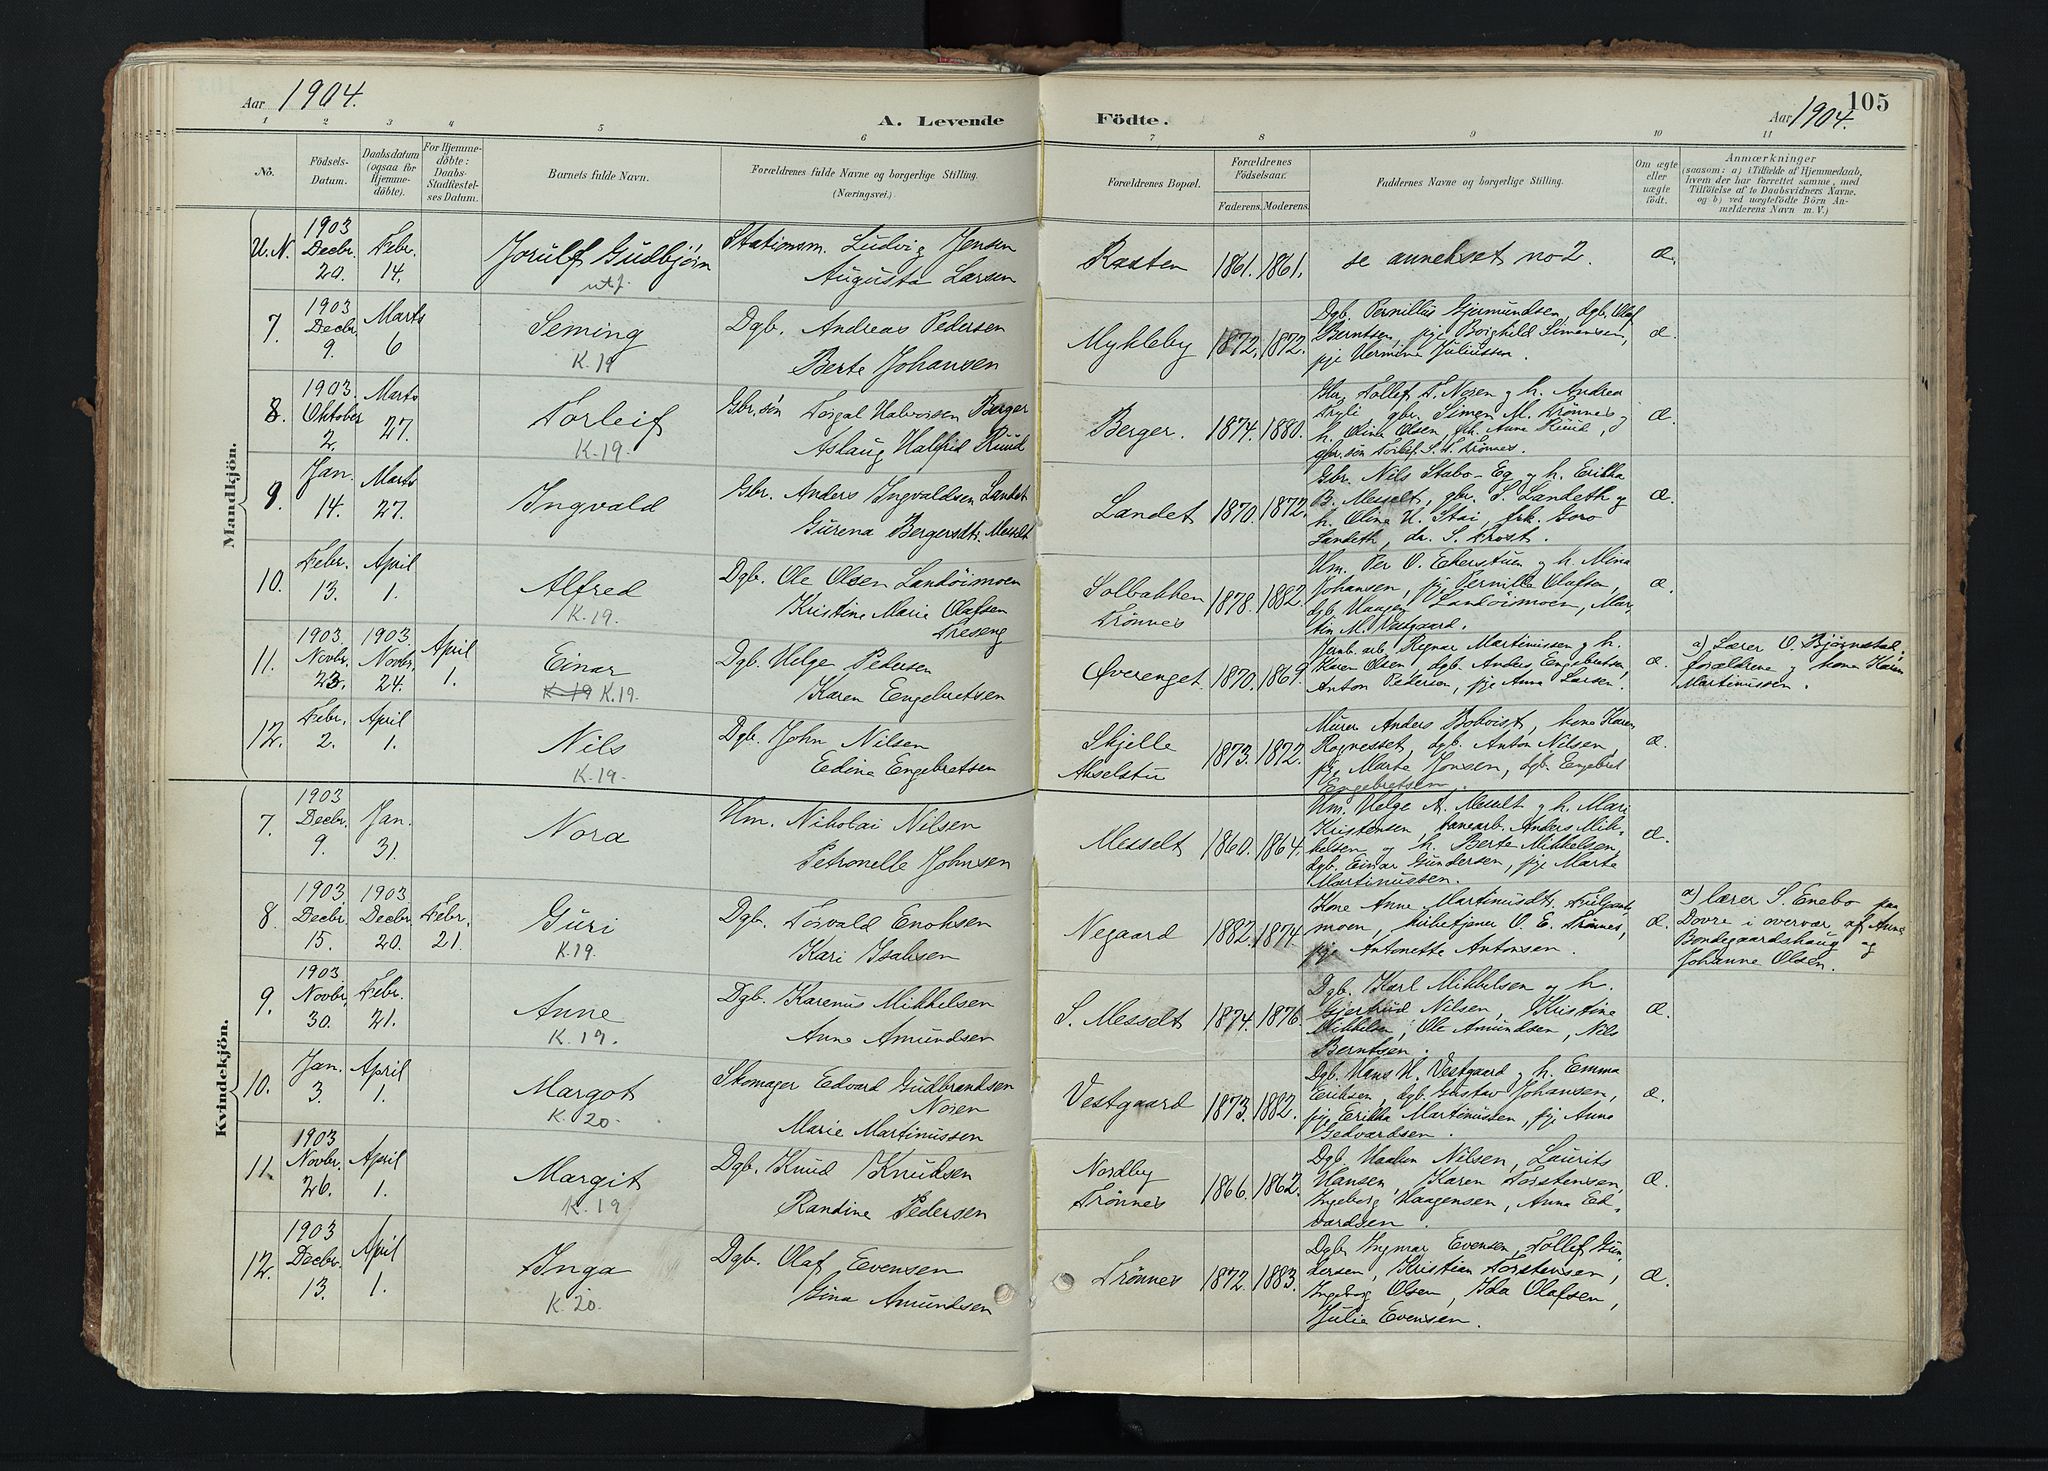 Aar 1904.
A. Levende Födte.
Aar 1904.
105
1 2 3 4 5 6 7 8 9 10 11
No.
Födsels-Datum.
Daabsdatum (ogsaa for Hjemmedöbte).
For Hjemmedöbte: Daabs-Stadfæstelses Datum.
Barnets fulde Navn.
Forældrenes fulde Navne og borgerlige Stilling. (Næringsvei.)
Forældrenes Bopæl.
Forældrenes Födselsaar.
Faderens. Moderens.
Faddernes Navne og borgerlige Stilling.
Om ægte eller uægte födt.
Anmærkninger
(saasom: a) i Tilfælde af Hjemmedaab, hvem der har forrettet samme, med Tilföielse af to Daabsvidners Navne. og b) ved uægtefödte Börn Anmelderens Navn m. V.)
Mandkjön.
U.N. 1903 Decbr. 20. Febr. 14. Jorulf Gudbjörn utf. Stationsm. Ludvig Jensen
Augusta Larsen
Rasten 1861. 1861. se annekset no 2. æ.
7. 1903 Decbr. 9. Marts 6 Seming K.19 Dgb. Andreas Pedersen
Berte Johansen
Mykleby 1872. 1872. Dgb. Pernillus Gjermundsen, dgb. Olaf
Berntsen, pje Borghild Simensen,
pje Hermine Juliussen. æ.
8. 1903. Oktober 2. Marts 27. Torleif K.19. Gbr. sön Torgal Halvorsen Berger
Aslaug Halfrid Ruud
Berger. 1874. 1880. Gbr. Tollef T. Noren og h. Andrea
Tryli, gbr. Simen M. Trönnes og
h. Oline Olsen, frk. Anne Ruud,
gbr. sön Torleif S. Trönnes. æ.
9. Jan. 14. Marts 27. Ingvald Gbr. Anders Ingvaldsen Landet
Gurena Bergersdtr. Messelt
Landet 1870. 1872. Gbr. Nils Stabo-Eg og h. Erikka
B. Messelt, gbr. S. Landeth og
h. Oline H. Stai, frk. Goro
Landeth, dr. S. Trost. æ.
10. Febr. 13. April 1. Alfred K.19. Dgb. Ole Olsen Landöimoen
Kristine Marie Olafsen
Treseng
Solbakken
Trönnes 1878. 1882. Hm. Per O. Ekerstuen og h. Mina
Johansen, pje Pernille Olafsen,
dgb. Haagen Landöismoen, Mar-
tin M. Vestgaard. æ.
11. 1903. Novbr. 23. 1903 Novbr. 24. April 1. Einar K.19 K.19. Dgb. Helge Pedersen
Karen Engebretsen
Øverenget 1870. 1869. Jernb. arb. Regnar Martinussen og h.
Karen Olsen, dgb. Anders Engebretsen,
Anton Pedersen, pje Anna Larsen. æ. a) Lærer O. Bjørnstad,
forældrene og kone Karen
Martinussen.
12. Febr. 2. April 1. Nils K.19. Dgb. John Nilsen
Edine Engebretsen
Skjelle
Akselstu 1873. 1872. Murer Anders Bokvist, kone Karen
Rognesset, dgb. Anton Nilsen,
pje Marte Jonsen, dgb. Engebret
Engebretsen. æ.
Kvindekjön.
7. 1903 Decbr. 9. Jan. 31. Nora Hm. Nikolai Nilsen
Petronelle Johnsen
Messelt 1860. 1864. Hm. Helge A. Messelt og h. Mari
Kristensen, banearb. Anders Mik-
kelsen og h. Berte Mikkelsen,
dgb. Einar Gundersen, pje Marte
Martinussen. æ.
8 1903. Decbr. 15. 1903 Decbr. 20. Febr. 21. Guri K.19. Dgb. Torvald Enoksen
Kari Isaksen
Negaard 1882. 1874. Kone Anne Martinusdtr.
moen, kirketjener O. E. Trönnes,
pje Antonette Antonsen. æ. a) lærer S. Enebo paa
Dovre i overvær af Anne
Bondegaardshaug og
Johanne Olsen.
9. 1903 Novbr. 30. Febr. 21. Anne K.19. Dgb. Karenus Mikkelsen
Anne Amundsen
S. Messelt 1874. 1876. Dgb. Karl Mikkelsen og h.
Gjertrud Nilsen, Kristine
Mikkelsen, Ole Amundsen, Nils
Berntsen. æ.
10. Jan. 3. April 1. Margot K.20. Skomager Edvard Gudbrandsen
Noren
Marie Martinussen
Vestgaard 1873. 1882. Dgb. Hans H. Vestgaard og h. Emma
Eriksen, dgb. Gustav Johansen,
pje Erikka Martinussen, pje Anna
Gedvardsen. æ.
11. 1903 Novbr. 26. April 1. Margit K.19 Dgb. Knud Knudsen
Randine Pedersen
Nordby
Trönnes 1866. 1862. Dgb. Haaken Nilsen, Laurits
Hansen, Karen Torstensen,
Ingeborg Haagensen, Anna Ed-
vardsen. æ.
12. 1903 Decbr. 13. April 1. Inga K.20. Dgb. Olaf Evensen
Gina Amundsen
Trönnes 1872. 1883. Dgb. Ingmar Evensen, Tollef Gun-
dersen, Kristian Torstensen,
Ingeborg Olsen, Ida Olafsen,
Julie Evensen. æ.